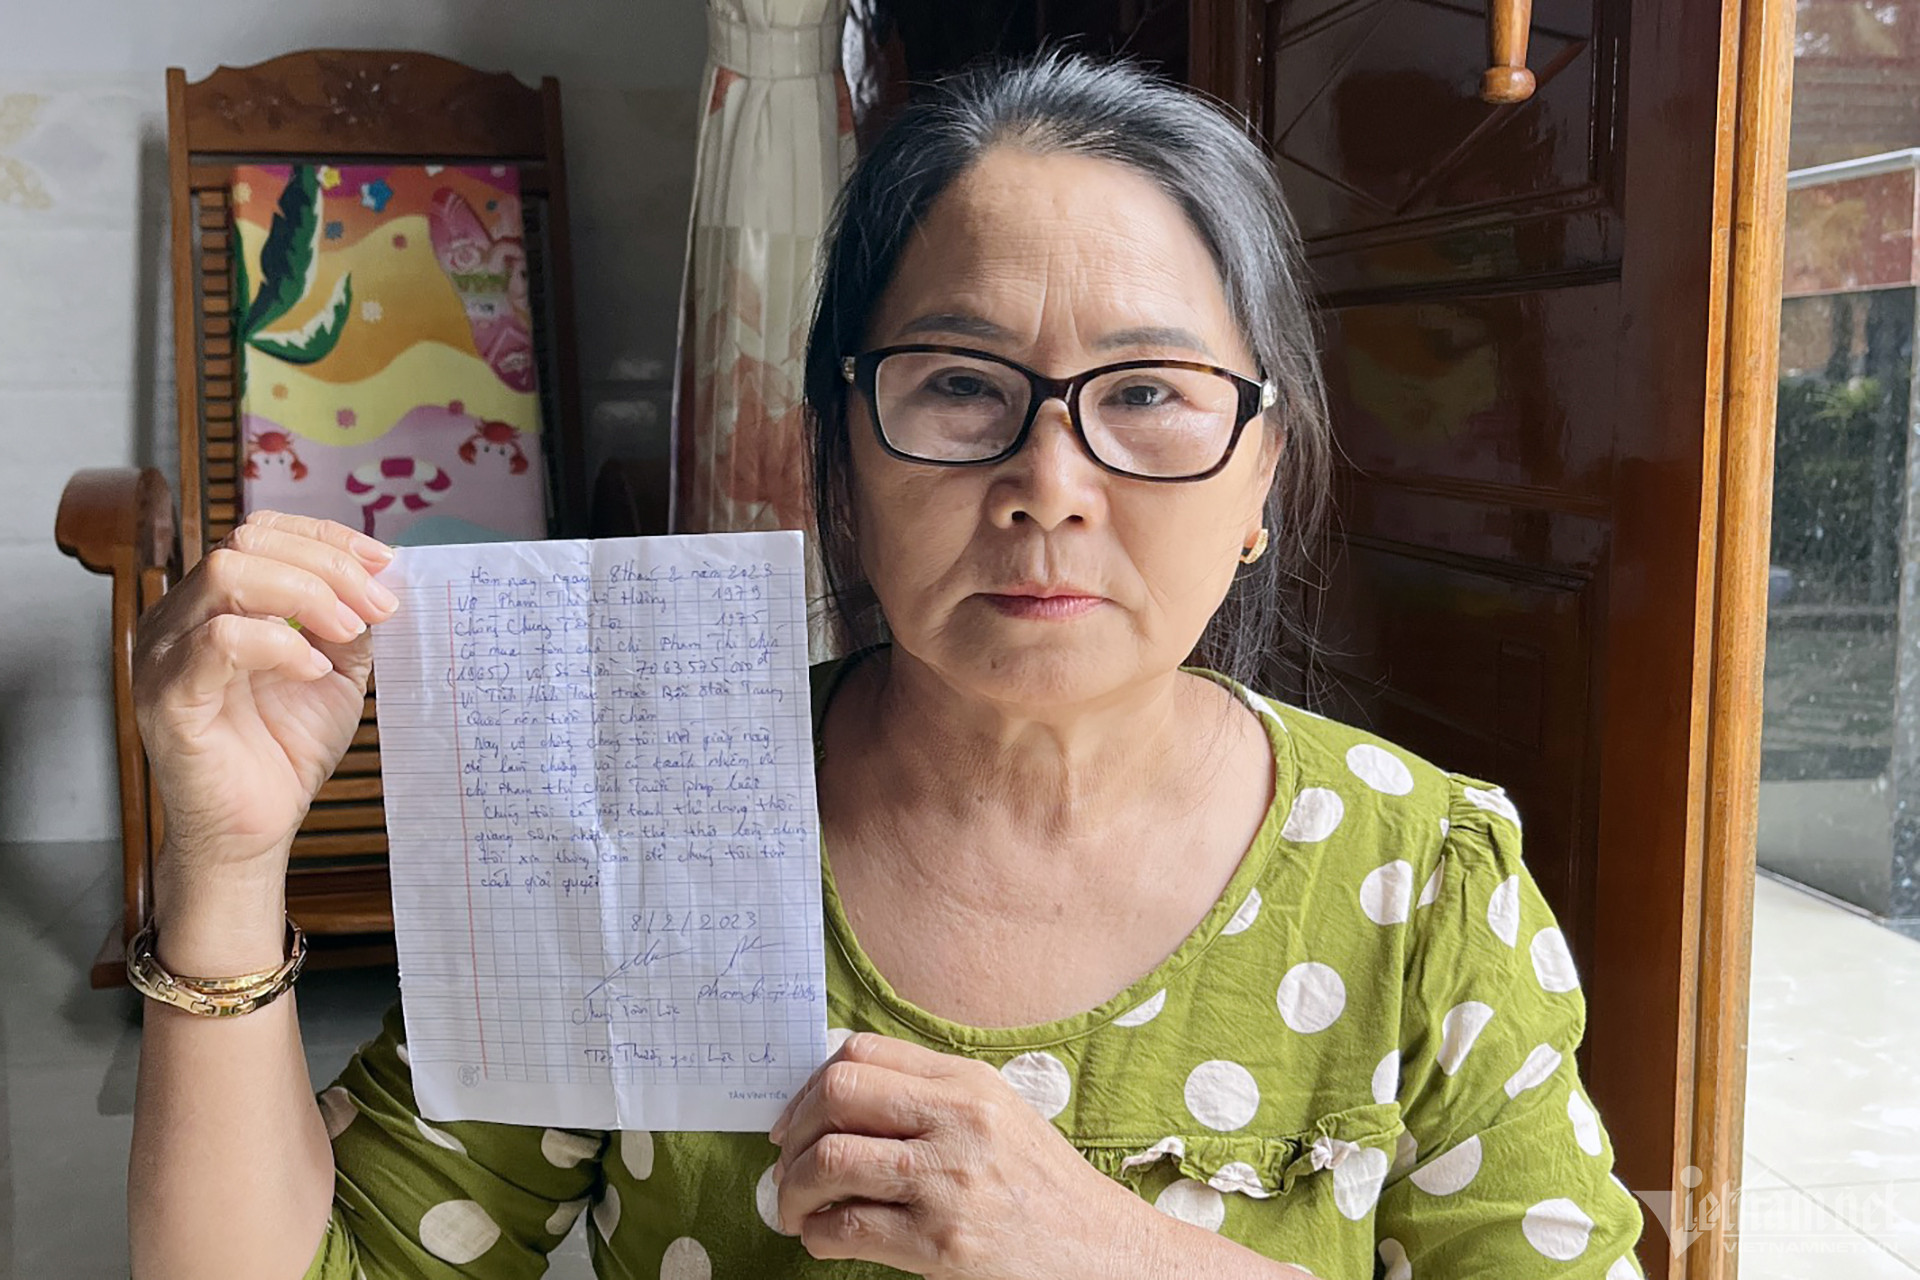 Hôm nay ngày 8 tháng 2 năm 2023
Vợ Phạm Thị Hường 1979
Chồng Chung Tấn Lộc 1975
Có mua tôm của chị Phạm Thị Chín
(1965) với Số tiền 7063575.000đ
Vì Tình Hình Trung
Quốc nên tiền về chậm
Nay vợ chồng chúng tôi viết giấy này
để làm chứng và có trách nhiệm với
chị Phạm thị Chín Trước pháp luật
Chúng tôi cố gắng thanh thời
gian sớm nhất có thể chúng
tôi xin thông cảm để chúng tôi tìm
cách giải quyết
8/2/2023
Chung Tấn Lộc
Tên Thường gọi Lộc
TÂN VĨNH TIẾN
Vietnamnet
VIETNAMNET.VN